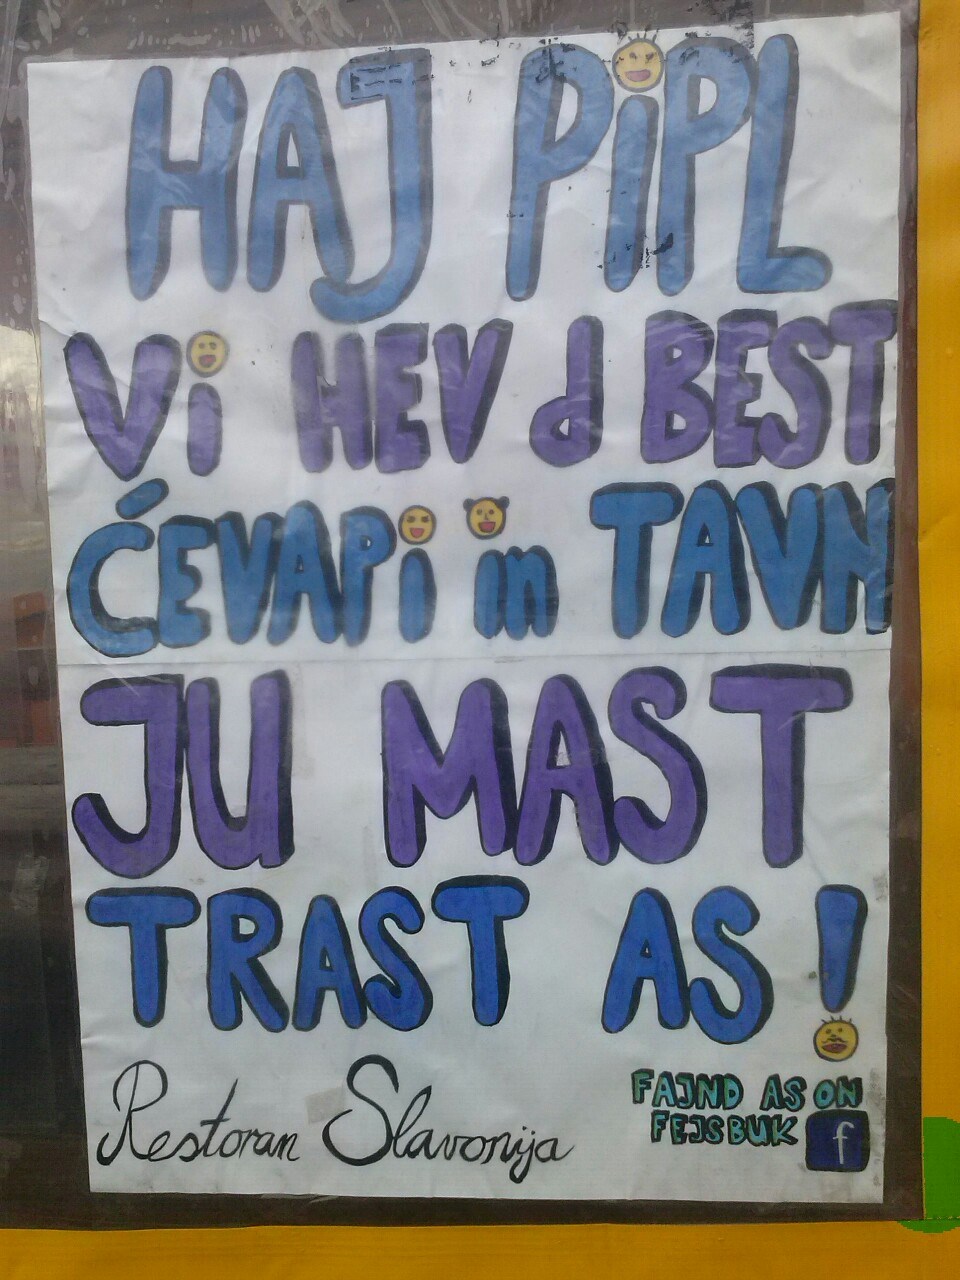 HAJ PiPL
Vi HEV d BEST
ĆEVAPi in TAVN
JU MAST
TRAST AS!
Restoran Slavonija
FAJND AS ON
FEJSBUK f